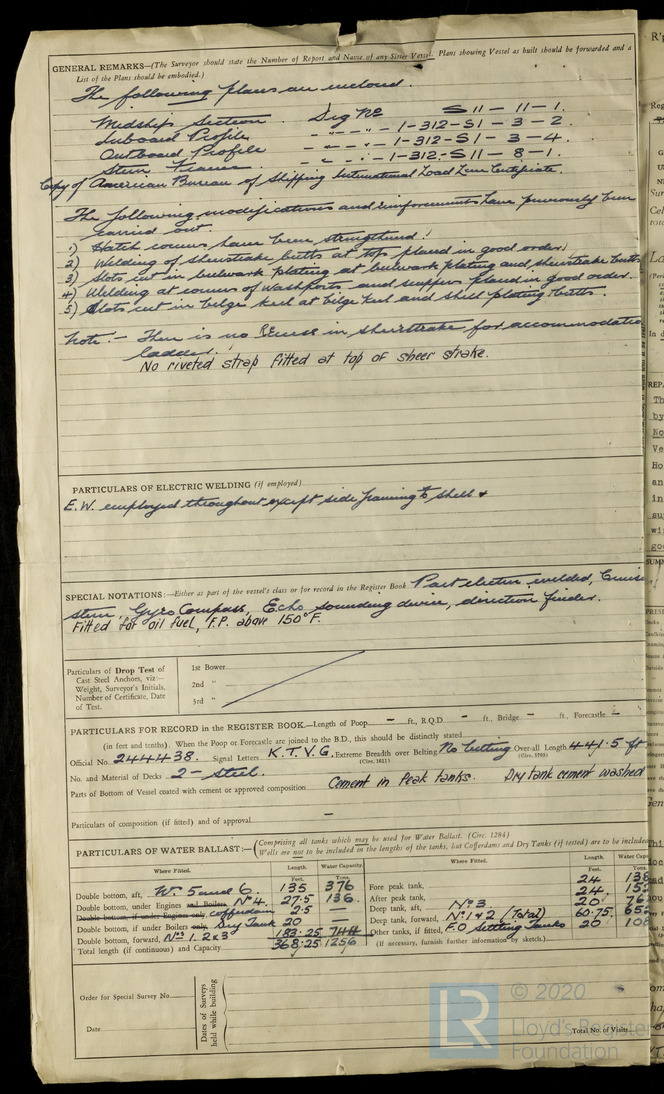 GENERAL REMARKS—(The Surveyor should state the Number of Report and Name of any Sister Vessel. Plans showing Vessel as built should be forwarded and a
List of the Plans should be embodied.)
The following plans are inclosed.
Midship Section. Drg No S11 - 11 - 1.
Inboard Profile - - - - 1-312-S1 - 3 - 2.
Outboard Profile - - - - 1-312-S1 - 3 - 4.
Stern Frame - - - - 1-312-S11 - 8 - 1.
Copy of American Bureau of Shipping International Load Line Certificate.
The following modifications and reinforcements have previously been
carried out.
1) Hatch corners have been strengthened.
2) Welding of sheerstrake butts at top placed in good order.
3) Slots cut in bulwark plating at bulwark plating and sheerstrake butts
4) Welding at corners of washports and scuppers placed in good order.
5) Slots cut in bilge keel at bilge keel and shell plating butts.
Note:- There is no Recess in sheerstrake for accommodation
ladder.
No riveted strap fitted at top of sheer strake.
PARTICULARS OF ELECTRIC WELDING (if employed)
E.W. employed throughout except side framing to shell &
SPECIAL NOTATIONS:—Either as part of the vessel's class or for record in the Register Book Part electric welded, Cruiser
stern Gyro Compass, Echo sounding device, direction finder.
Fitted for oil fuel, F.P. above 150°F.
Particulars of Drop Test of
Cast Steel Anchors, viz:—
Weight, Surveyor's Initials,
Number of Certificate, Date
of Test.
1st Bower
2nd "
3rd "
PARTICULARS FOR RECORD in the REGISTER BOOK.—Length of Poop - ft., R.Q.D. - ft., Bridge - ft., Forecastle -
(in feet and tenths). When the Poop or Forecastle are joined to the B.D., this should be distinctly stated
Official No. 244438. Signal Letters K.T.V.G. Extreme Breadth over Belting No belting Over-all Length 441.5 ft
(Circ. 1611)
No. and Material of Decks 2 - steel.
Parts of Bottom of Vessel coated with cement or approved composition Cement in Peak tanks. Dry tank cement washed
Particulars of composition (if fitted) and of approval -
PARTICULARS OF WATER BALLAST:—(Comprising all tanks which may be used for Water Ballast. (Circ. 1284)
Wells are not to be included in the lengths of the tanks, but Cofferdams and Dry Tanks (if tested) are to be included
Where Fitted. Length. Water Capacity. Where Fitted. Length. Water Capac
Feet. Tons. Feet. Tons.
Double bottom, aft, Nos. 5 and 6. 135 376 Fore peak tank, 24 138
Double bottom, under Engines and Boilers No 4. 27.5 136. After peak tank, 24.
Double bottom, if under Engines only, cofferdam 2.5 — Deep tank, aft, No 3 20
Double bottom, if under Boilers only, Dry Tank 20 — Deep tank, forward, No 1 & 2 (Total) 60.75
Double bottom, forward, Nos 1. 2 & 3 183.25 744 Other tanks, if fitted, F.O Settling Tanks 20
Total length (if continuous) and Capacity 368.25 1256 (If necessary, furnish further information by sketch.)
Order for Special Survey No.
Date
Dates of Surveys
held while building
Total No. of Visits
LR
© 2020
Lloyd's Register
Foundation